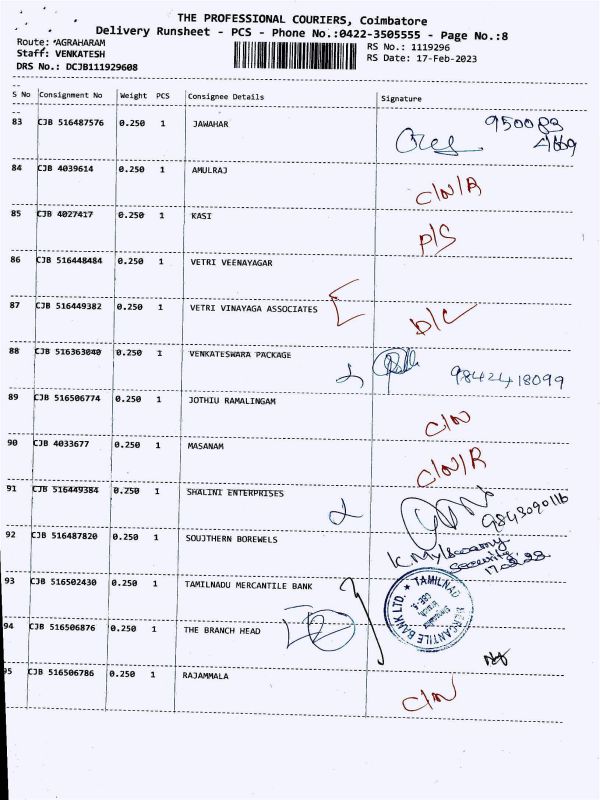 THE PROFESSIONAL COURIERS, Coimbatore
Delivery Runsheet - PCS - Phone No.:0422-3505555 - Page No.:8
Route: AGRAHARAM
RS No.: 1119296
Staff: VENKATESH
RS Date: 17-Feb-2023
DRS No.: DCJB111929608
S No Consignment No Weight PCS Consignee Details Signature
83 CJB 516487576 0.250 1 JAWAHAR
84 CJB 4039614 0.250 1 AMULRAJ C/N/R
85 CJB 4027417 0.250 1 KASI P/S
86 CJB 516448484 0.250 1 VETRI VEENAYAGAR
87 CJB 516449382 0.250 1 VETRI VINAYAGA ASSOCIATES D/L
88 CJB 516363040 0.250 1 VENKATESWARA PACKAGE 9842418099
89 CJB 516506774 0.250 1 JOTHIU RAMALINGAM C/N
90 CJB 4033677 0.250 1 MASANAM C/N/R
91 CJB 516449384 0.250 1 SHALINI ENTERPRISES
92 CJB 516487820 0.250 1 SOUJTHERN BOREWELS
Security
93 CJB 516502430 0.250 1 TAMILNADU MERCANTILE BANK
TAMILNAD MERCANTILE BANK LTD.
94 CJB 516506876 0.250 1 THE BRANCH HEAD
95 CJB 516506786 0.250 1 RAJAMMALA C/N